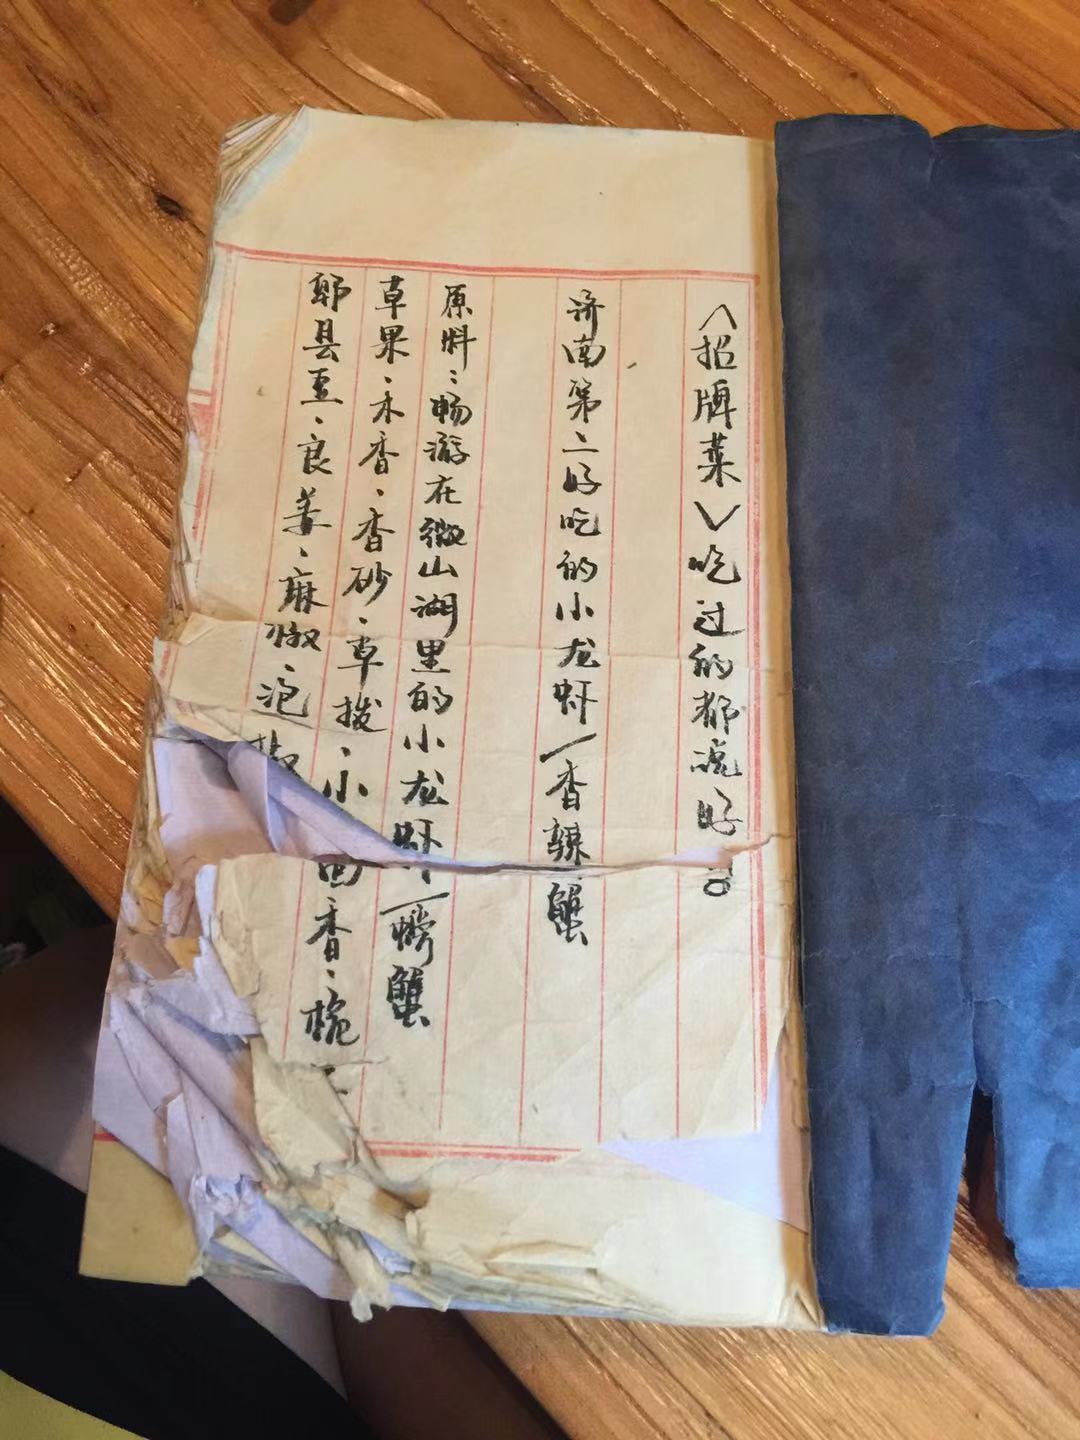 〈招牌菜〉吃过的都说好！
济南第二好吃的小龙虾/香辣蟹
原料：畅游在微山湖里的小龙虾/螃蟹
草果、木香、香砂、草拨、小茴香、桅
郫县豆、良姜、麻椒、泡椒